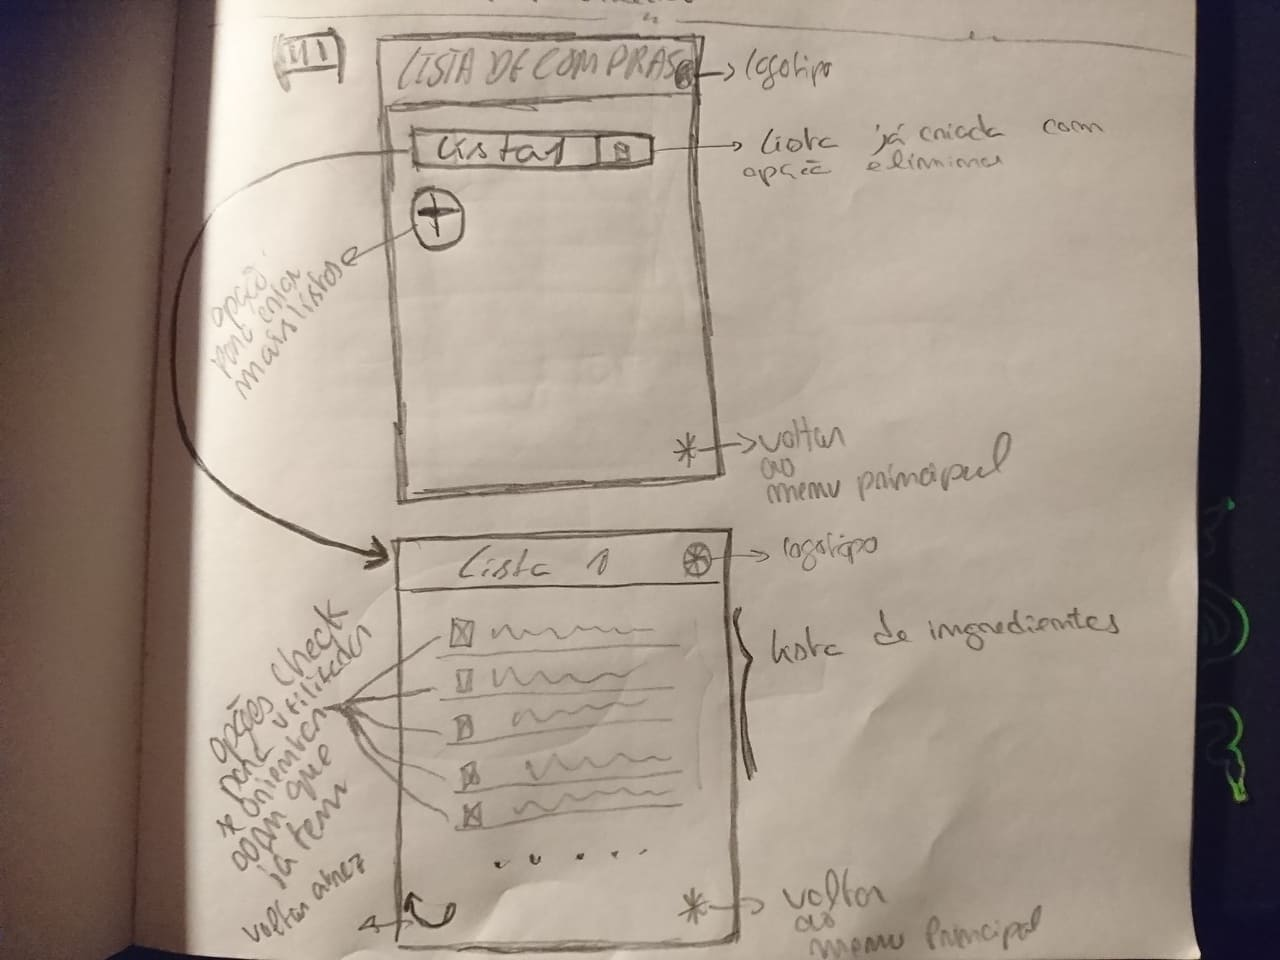 LISTA DE COMPRAS
logotipo
Lista 1
Lista já criada com
opção eliminar
+
opção
para criar
mais listas
voltar
ao
menu principal
Lista 1
logotipo
lista de ingredientes
opções check
para utilizador
se orientar
com que
já tem
voltar atrez
voltar
ao
menu Principal